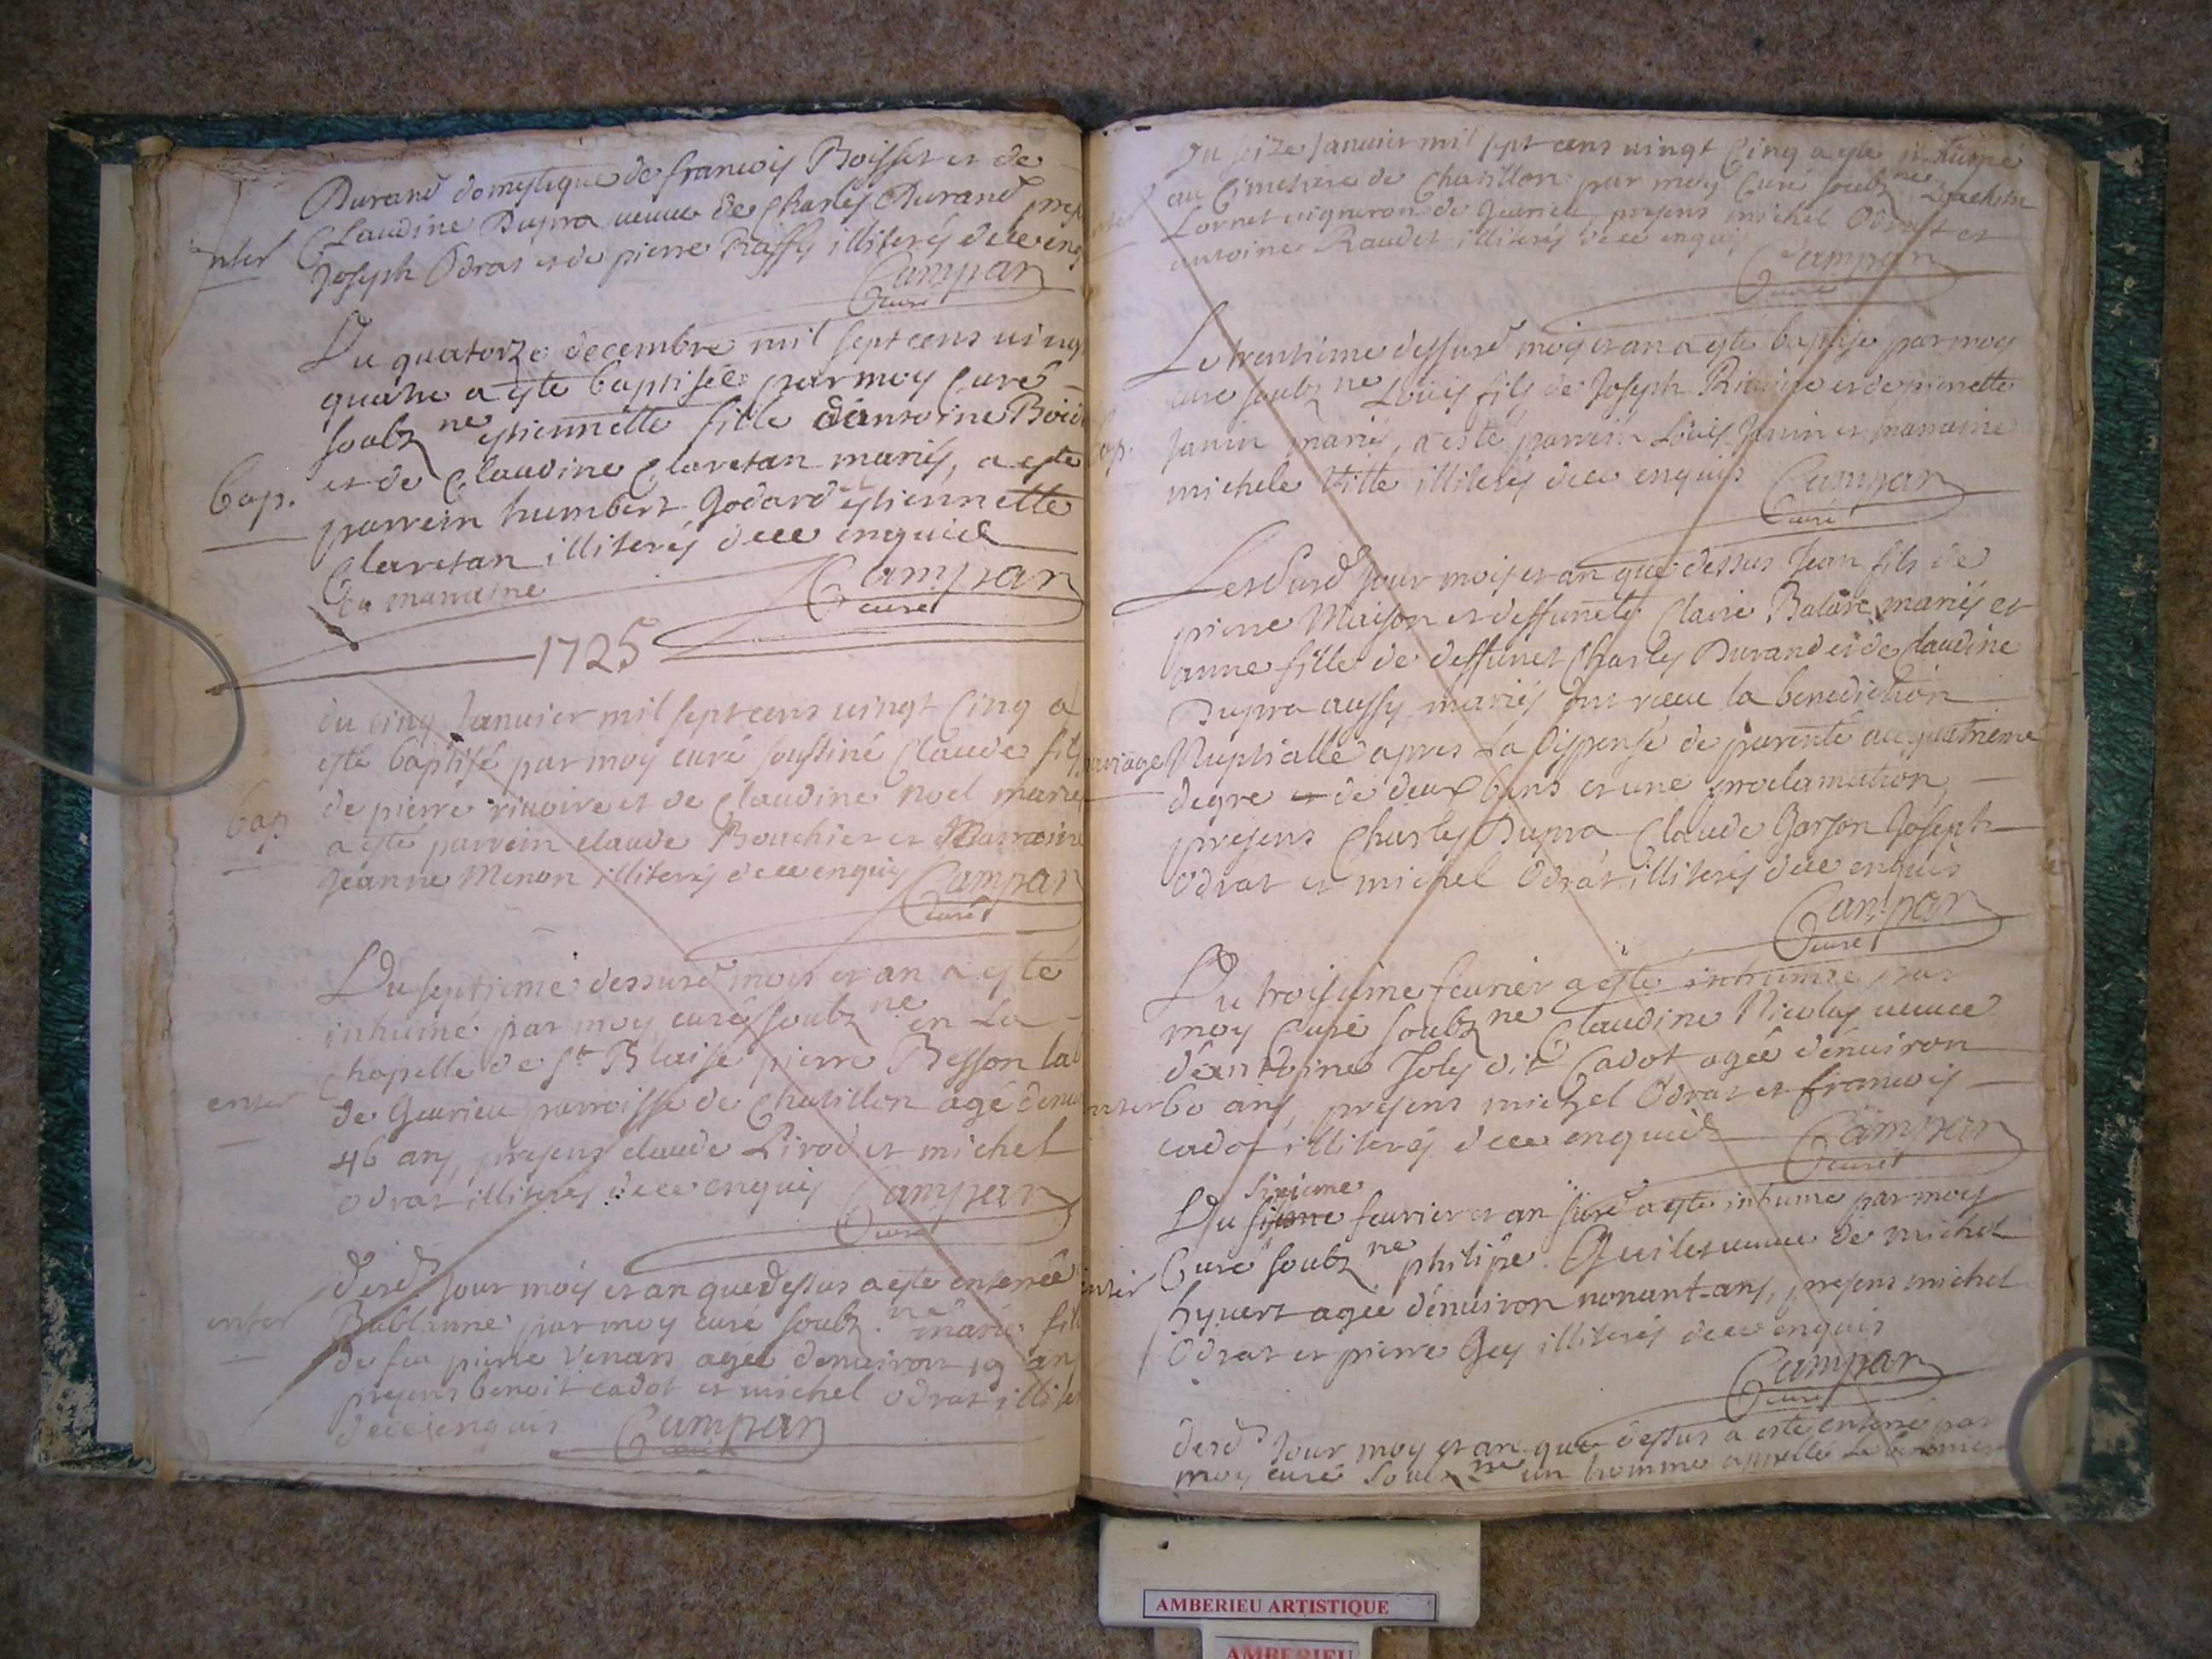 Durand domestique de francois Boisset et de
Claudine Dupra ueuue de Charles Durand
Joseph Odrat et de pierre Raffy illiterés de ce
enter
Campar
curé
Du quatorze decembre mil sept cens uingt
quatre a esté baptisée par moy Curé
soubz ne estiennette fille d'antoine
et de Claudine Claretan mariés, a esté
bap.
parrein humbert Godard estiennette
Claretan illiterés de ce enquis
La marraine
Campar
curé
1725
du cinq Januier mil sept cens uingt Cinq a
esté baptisé par moy curé soussiné Claude fils
de pierre riuoire et de Claudine noel mariés
bap
a esté parrein claude Bouchier et Marraine
jeanne Menon illiterés de ce enquis
Campar
curé
Du septieme dessusd mois et an a esté
inhumé par moy curé soubz ne en La
Chapelle de St Blaise pierre Besson lab
enter
de Geurieu parroisse de Chatillon agé denui
46 ans, presens claude Pirod et michel
odrat illiterés de ce enquis
Campar
curé
desd Jour mois et an que dessus a esté enterrée
enter
par moy curé soubz ne marie fille
de feu pierre Venars agée denuiron 19 ans
presens benoit cadot et michel odrat illite
de ce enquis
Campar
Du seize Januier mil sept cens uingt Cinq a esté inhumé
au Cimetiere de Chatillon par moy Curé soubz ne
Lornet uigneron de Geurieu, presens michel Odrat et
antoine Raudet illiterés de ce enquis
Campar
curé
Le trentieme dessusd mois et an a esté baptisé par moy
cure soubz ne Louis fils de Joseph Riuoire et de pierrette
bap.
Janin mariés, a esté parrein Louis Janin et marraine
michele Vitte illiterés de ce enquis
Campar
curé
Lesdusd Jour mois et an que dessus Jean fils de
pierre Maison et deffuncte Claire mariés et
anne fille de deffunct Charles Durand et de Claudine
Dupra aussy mariés ont receu la benediction
mariage
Nuptialle apres La dispense de parenté au quatrieme
degre et de deux bans et une proclamation,
presens Charles Dupra Claude Garson Joseph
Odrat et michel Odrat illiterés de ce enquis
Campar
curé
Du troisieme feurier a esté inhumée par
moy Curé soubz ne Claudine Nicolas ueuue
d'antoine Joly dit Cadot agée d'enuiron
enter
60 ans, presens michel Odrat et francois
cadot illiterés de ce enquis
Campar
curé
sixieme
Du feurier et an susd a esté inhume par moy
Curé soubz ne philipe ueuue de michel
enter
hyuert agée d'enuiron nonant ans, presens michel
Odrat et pierre Gey illiterés de ce enquis
Campar
curé
desd Jour moy et an que dessus a esté enterré par
moy curé soubz ne un homme appellé
AMBERIEU ARTISTIQUE
AMBERIEU